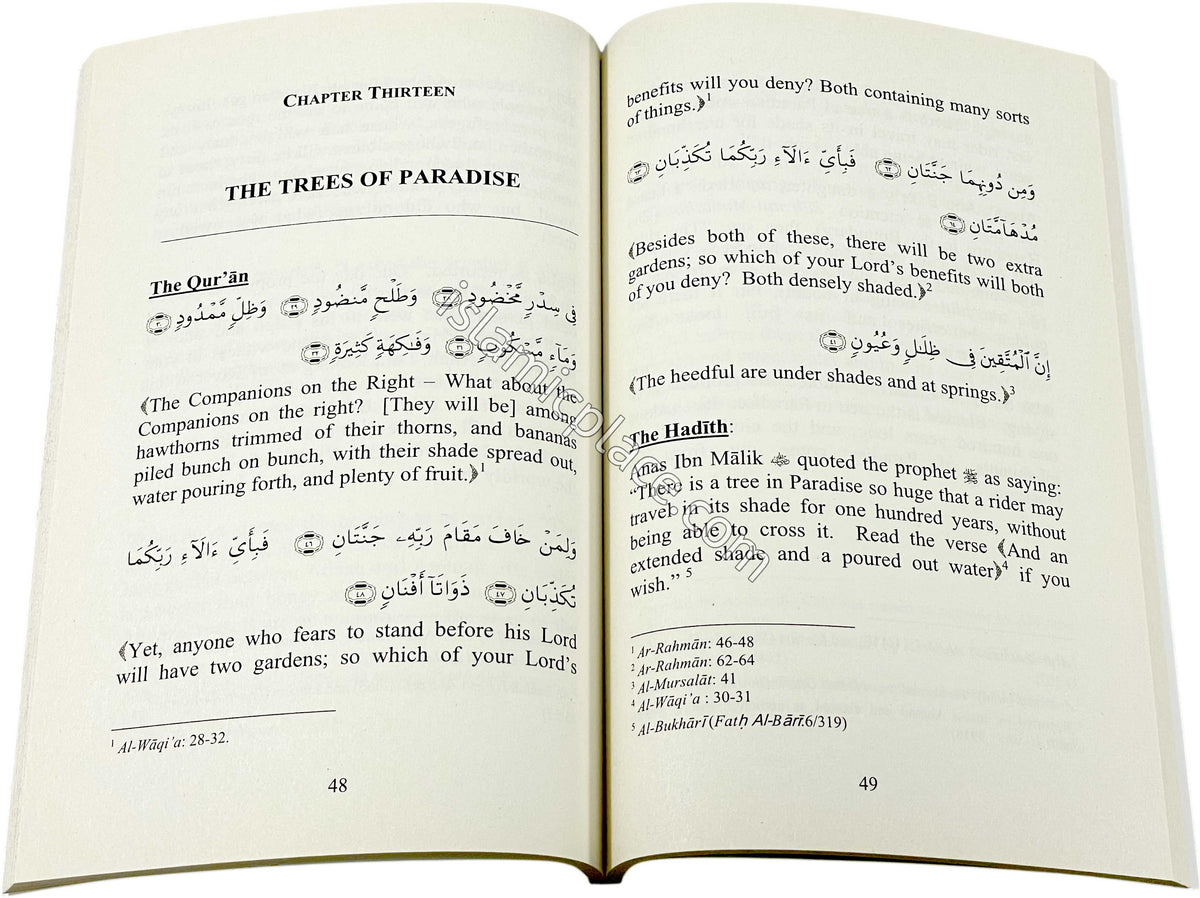 CHAPTER THIRTEEN
THE TREES OF PARADISE
The Qur’ān
فِي سِدْرٍ مَّخْضُودٍ ٢٨ وَطَلْحٍ مَّنضُودٍ ٢٩ وَظِلٍّ مَّمْدُودٍ ٣٠
وَمَآءٍ مَّسْكُوبٍ ٣١ وَفَٰكِهَةٍ كَثِيرَةٍ ٣٢
﴾The Companions on the Right – What about the
Companions on the right? [They will be] among
hawthorns trimmed of their thorns, and bananas
piled bunch on bunch, with their shade spread out,
water pouring forth, and plenty of fruit.﴿1
وَلِمَنْ خَافَ مَقَامَ رَبِّهِۦ جَنَّتَانِ ٤٦ فَبِأَيِّ ءَالَآءِ رَبِّكُمَا
تُكَذِّبَانِ ٤٧ ذَوَاتَآ أَفْنَانٍ ٤٨
﴾Yet, anyone who fears to stand before his Lord
will have two gardens; so which of your Lord’s
1 Al-Wāqi’a: 28-32.
48
benefits will you deny? Both containing many sorts
of things.﴿1
وَمِن دُونِهِمَا جَنَّتَانِ ٦٢ فَبِأَيِّ ءَالَآءِ رَبِّكُمَا تُكَذِّبَانِ ٦٣
مُدْهَآمَّتَانِ ٦٤
﴾Besides both of these, there will be two extra
gardens; so which of your Lord’s benefits will both
of you deny? Both densely shaded.﴿2
إِنَّ ٱلْمُتَّقِينَ فِي ظِلَٰلٍ وَعُيُونٍ ٤١
﴾The heedful are under shades and at springs.﴿3
The Hadīth:
Anas Ibn Mālik quoted the prophet ﷺ as saying:
“There is a tree in Paradise so huge that a rider may
travel in its shade for one hundred years, without
being able to cross it. Read the verse ﴾And an
extended shade and a poured out water﴿4 if you
wish.” 5
1 Ar-Rahmān: 46-48
2 Ar-Rahmān: 62-64
3 Al-Mursalāt: 41
4 Al-Wāqi’a : 30-31
5 Al-Bukhārī (Fatḥ Al-Bārī 6/319)
49
islamicplace.com